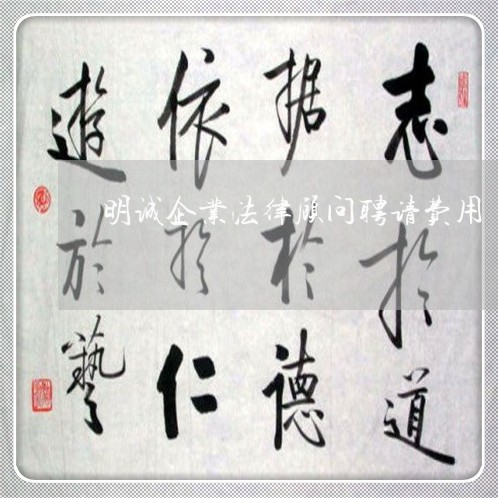 志於道
据於德
依於仁
遊於藝
明诚企業法律顾问聘请费用